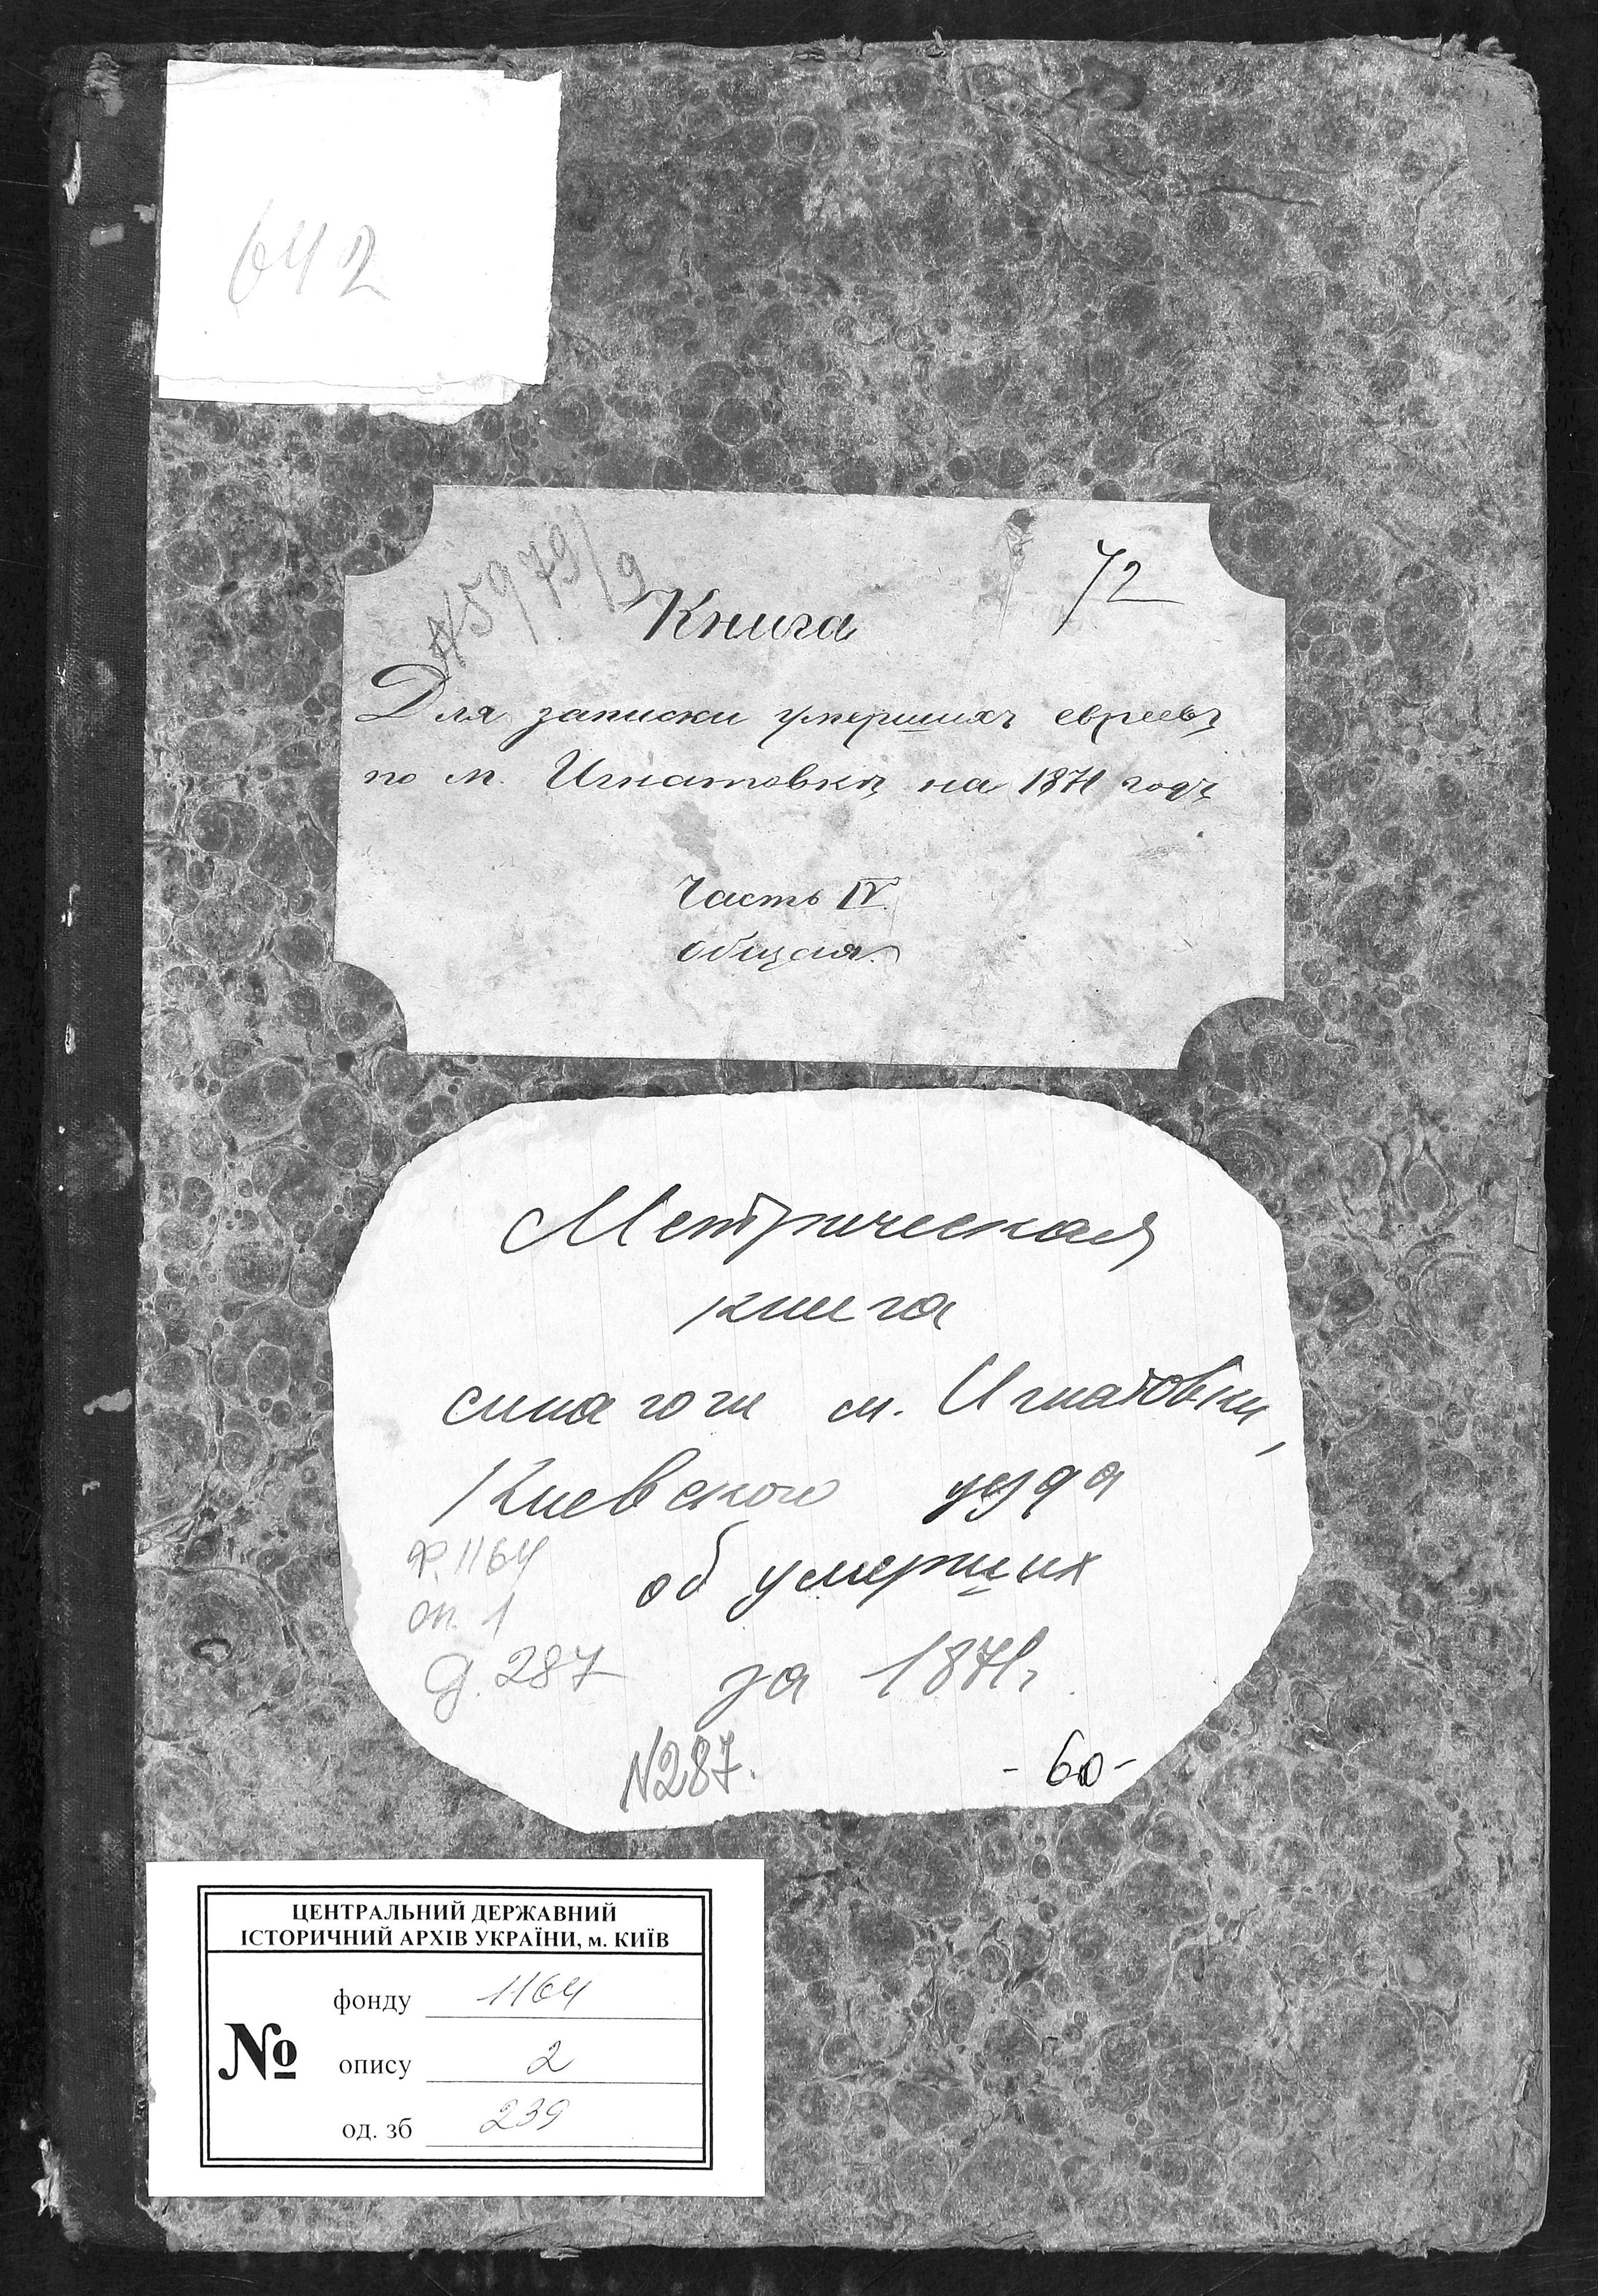 642
№5979/9
72
Книга
Для записки умершихъ евреевъ
по м. Игнатовкѣ на 1871 годъ
Часть IV.
общая.
Метрическая
книга
синагоги м. Игнатовки,
Киевского уезда
об умерших
за 1871г.
ф. 1164
оп. 1
д. 287
N287.
-60-
ЦЕНТРАЛЬНИЙ ДЕРЖАВНИЙ
ІСТОРИЧНИЙ АРХІВ УКРАЇНИ, м. КИЇВ
№
фонду 1164
опису 2
од. зб 239